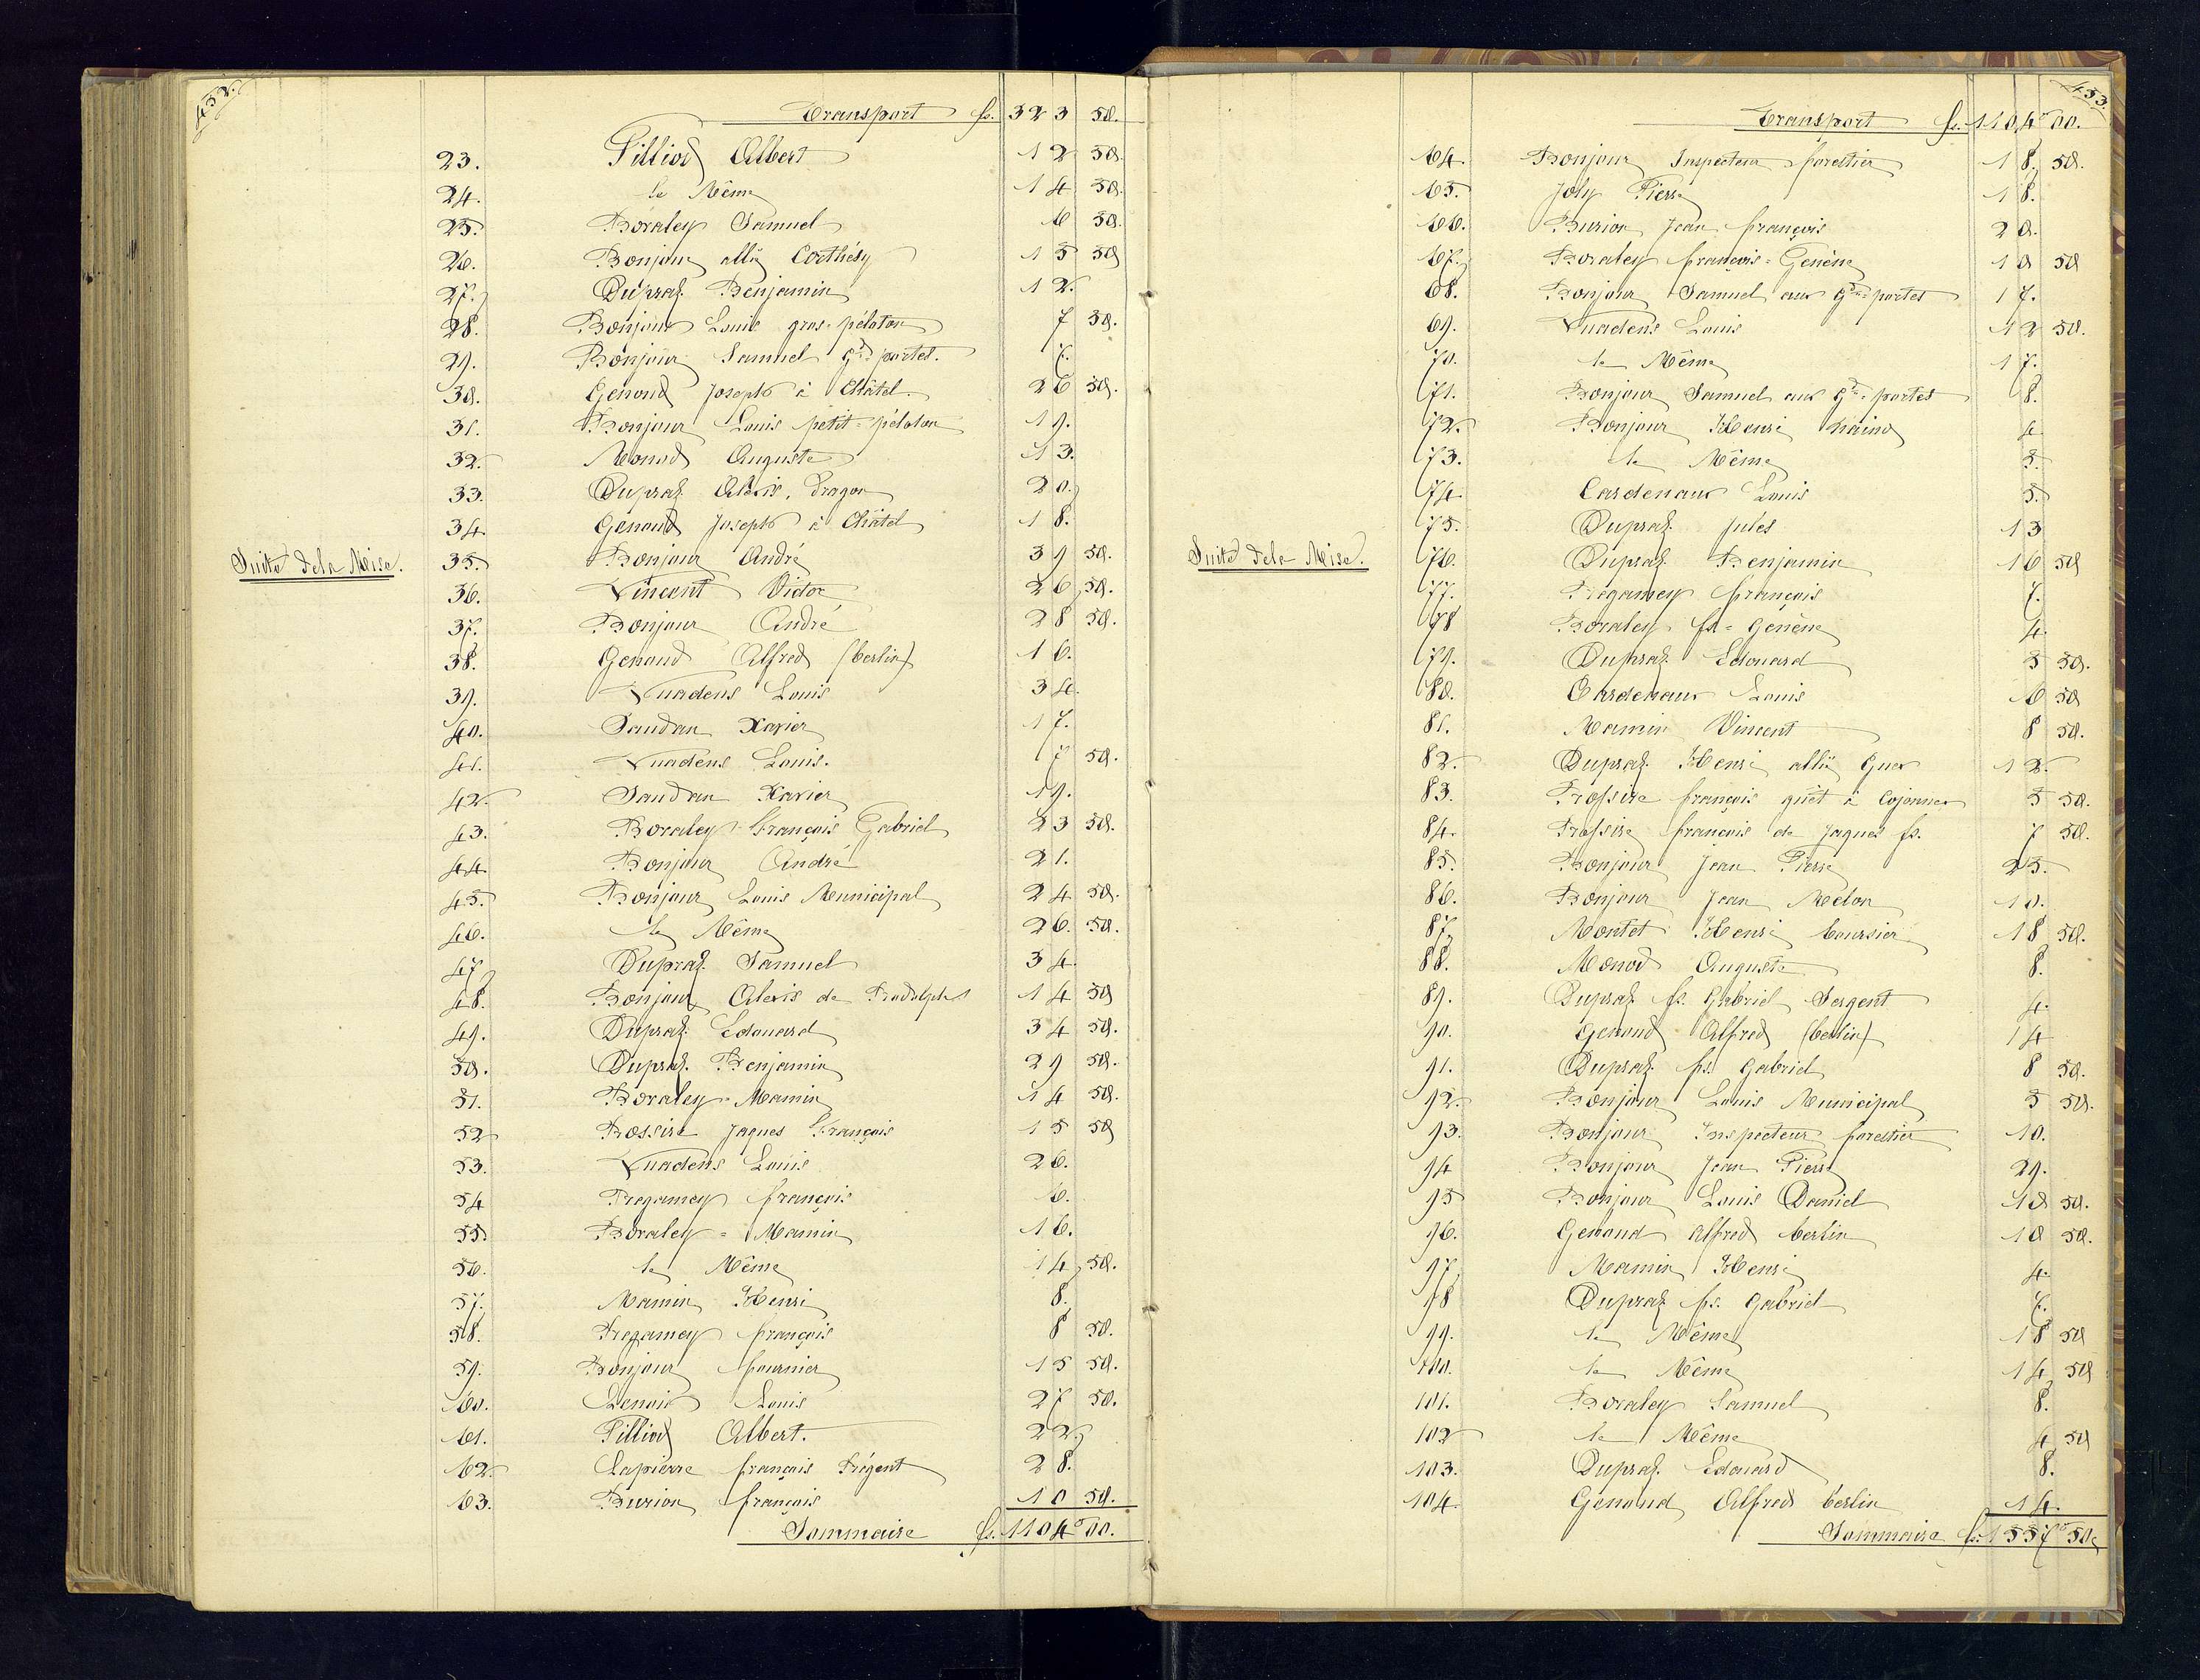 432.
Transport fs. 323 50.
23. Pilliod Albert 12 50.
24. le Même 14 50.
25. Boraley Samuel 6 50.
26. Bonjour allié Corthésy 15 50
27. Dupraz Benjamin 12.
28. Bonjour Louis gros-péloton 7 50.
29. Bonjour Samuel gdes portes. 7.
30. Genoud Joseph à Châtel 26 50.
31. Bonjour Louis petit-péloton 19.
32. Monod Auguste 13.
33. Dupraz Alexis, Dragon 20.
34 Genoud Joseph à Châtel 18.
Suite de la Mise. 35. Bonjour André 39 50.
36. Vincent Victor 26 50.
37. Bonjour André 28 50.
38. Genoud Alfred (berlin) 16.
39. Vuadens Louis 34.
40. Saudan Xavier 17.
41. Vuadens Louis. 7 50.
42. Saudan Xavier 19.
43. Boraley François Gabriel 23 50.
44. Bonjour André 21.
45. Bonjour Louis Municipal 24 50.
46. le Même 26. 50.
47 Dupraz Samuel 34.
48. Bonjour Alexis de Rodolphe 14 50
49. Dupraz Edouard 34 50.
50. Dupraz Benjamin 29 50.
51. Boraley-Mamin 14 50.
52 Rossire Jaques François 15 50
53. Vuadens Louis 26.
54 Pregamey françois 6.
55. Boraley-Mamin 16.
56. le Même 14 50.
57. Mamin Henri 8.
58. Pregamey françois 8 50.
59. Bonjour fournier 15 50.
60. Lenoir Louis 27 50.
61. Pilliod Albert. 22.
62. Lapierre françois Régent 28.
63. Burion françois 10 50.
Sommaire fs. 1104 00.
433.
Transport fs. 1104 00.
64. Bonjour Inspecteur forestier 18. 50.
65. Joly Pierre 18.
66. Burion Jean françois 20.
67. Boraley françois-Genène 10 50
68. Bonjour Samuel aux gdes-portes 17.
69. Vuadens Louis 12 50.
70. le Même 17.
71. Bonjour Samuel aux gdes-portes 8.
72. Bonjour Henri 4
73. le Même 5.
74 Cardenaux Louis 5.
75. Dupraz Jules 13
Suite de la Mise. 76. Dupraz Benjamin 16 50
77. Pregamey françois 7.
78 Boraley fs-Genène 4.
79. Dupraz Edouard 5 50.
80. Cardenaux Louis 6 50
81. Mamin Vincent 8 50.
82. Dupraz Henri allié Guex 12.
83. Rossire françois guêt à Cojonnex 5 50.
84. Rossire françois de Jaques fs. 7 50.
85. Bonjour Jean Pierre 25.
86. Bonjour Jean Melon 10.
87. Montet Henri boursier 18 50.
88. Monod Auguste 8.
89. Dupraz fs. Gabriel Sergent 4.
90. Genoud Alfred (berlin) 14
91. Dupraz fs. Gabriel 8 50.
92. Bonjour Louis Municipal 5 50.
93. Bonjour Inspecteur forestier 10.
94 Bonjour Jean Pierre 29.
95 Bonjour Louis Daniel 10 50.
96. Genoud Alfred berlin 10 50.
97. Mamin Henri 4.
98 Dupraz fs. Gabriel 7.
99. le Même 18 50
100. le Même 14 50
101. Boraley Samuel 8.
102 le Même 4 50
103. Dupraz Edouard 8.
104. Genoud Alfred berlin 14.
Sommaire fs. 1557 50